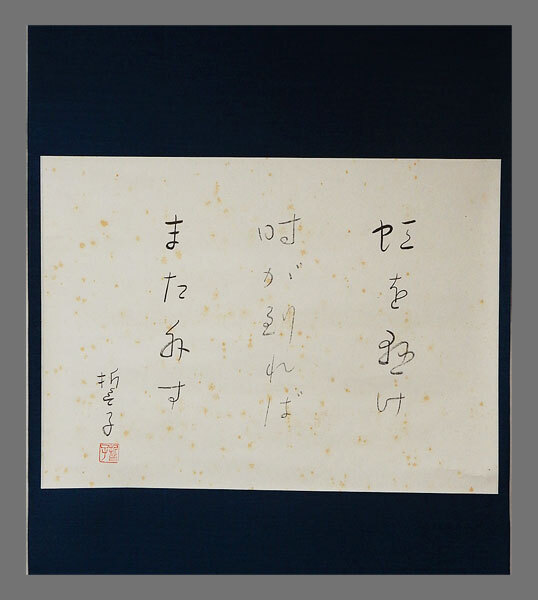 虹を懸け
時が到れば
また外す
誓子